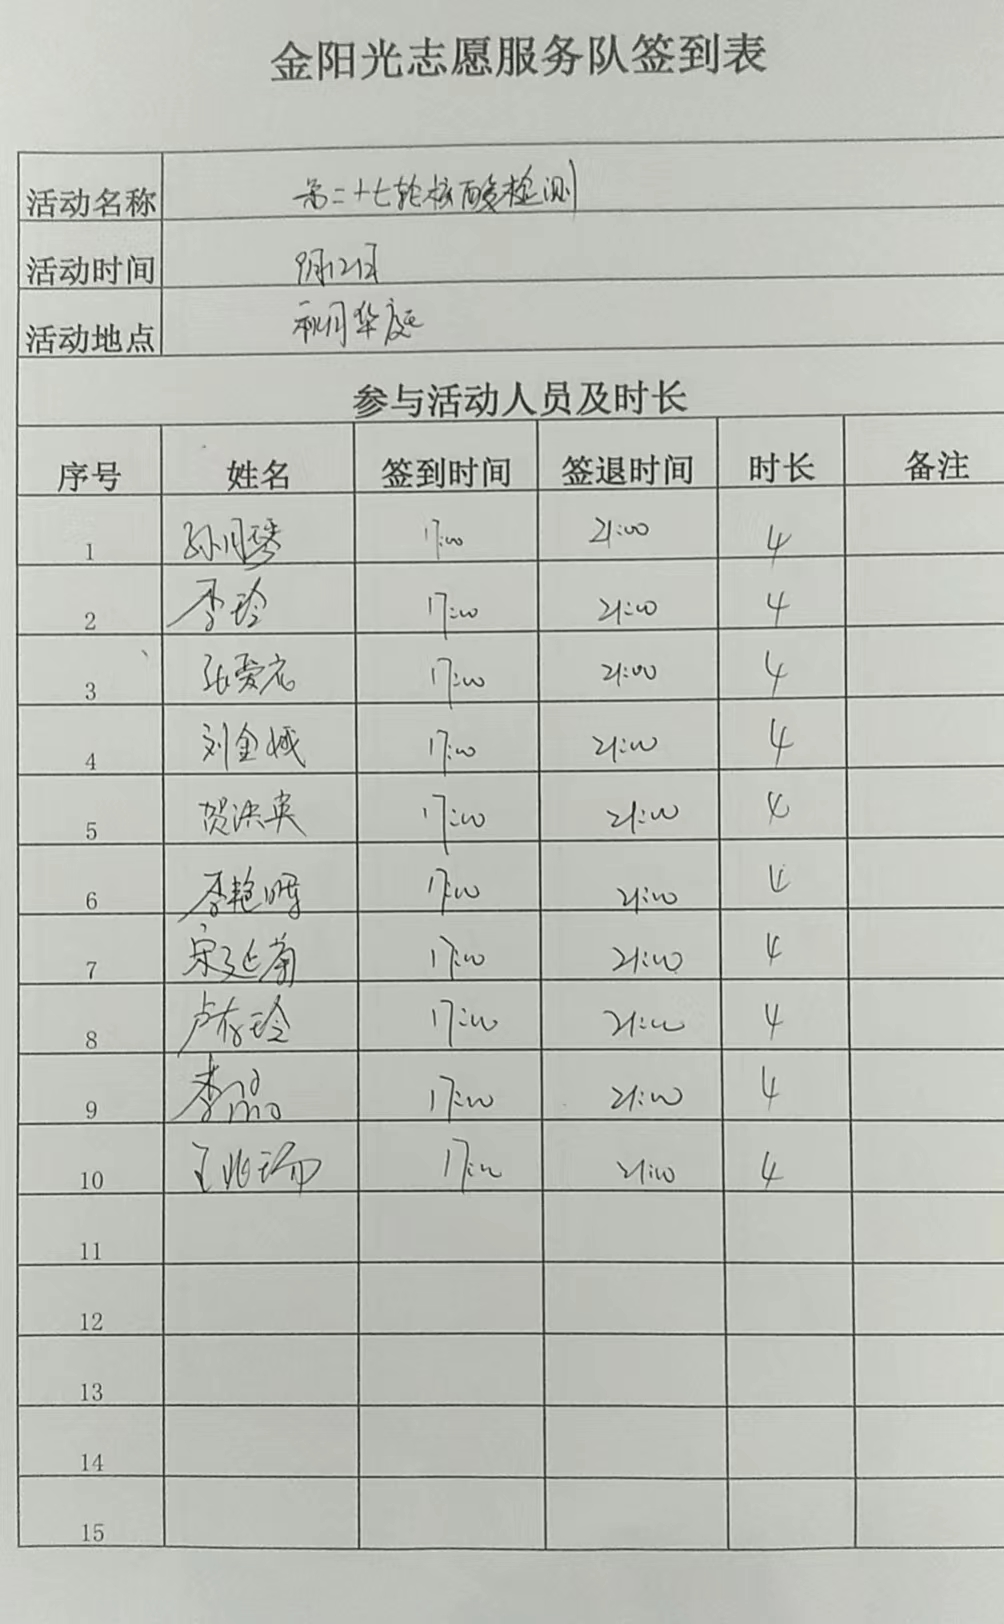 金阳光志愿服务队签到表
活动名称 第二十七轮核酸检测
活动时间 9月12日
活动地点 秋月华庭
参与活动人员及时长
序号 姓名 签到时间 签退时间 时长 备注
1 孙月琴 17:00 21:00 4
2 李玲 17:00 21:00 4
3 张爱 17:00 21:00 4
4 刘金 17:00 21:00 4
5 贺洪英 17:00 21:00 4
6 李艳晖 17:00 21:00 4
7 宋延菊 17:00 21:00 4
8 卢存玲 17:00 21:00 4
9 李晶 17:00 21:00 4
10 王兆瑞 17:00 21:00 4
11
12
13
14
15